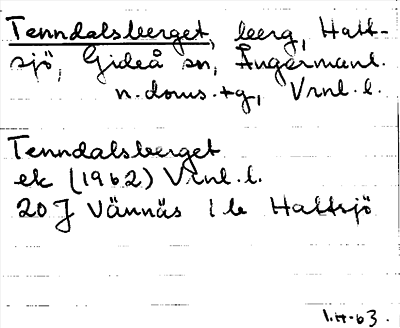 Tenndalsberget, berg, Hatt-
sjö, Gideå sn, Ångermanl.
n.doms.+g, Vrnl.l.
Tenndalsberget
ek (1962) Vrnl.l.
20J Vännäs 1 b Hattsjö
1.H-63.